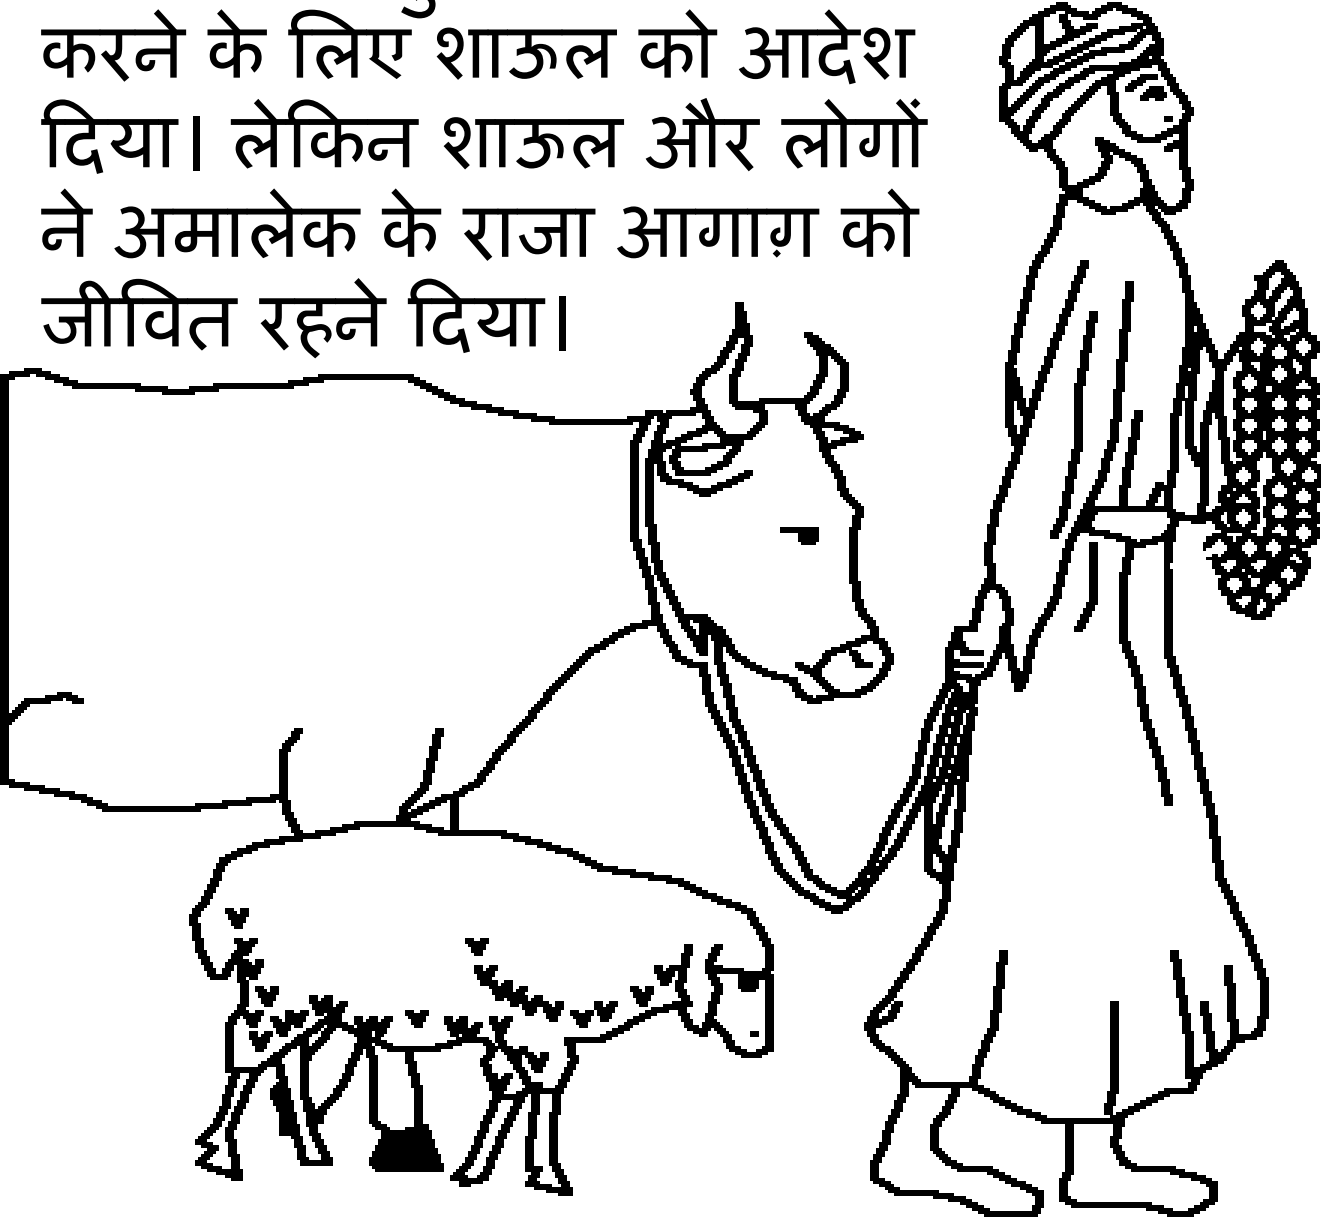 करने के लिए शाऊल को आदेश
दिया। लेकिन शाऊल और लोगों
ने अमालेक के राजा आगाग़ को
जीवित रहने दिया।